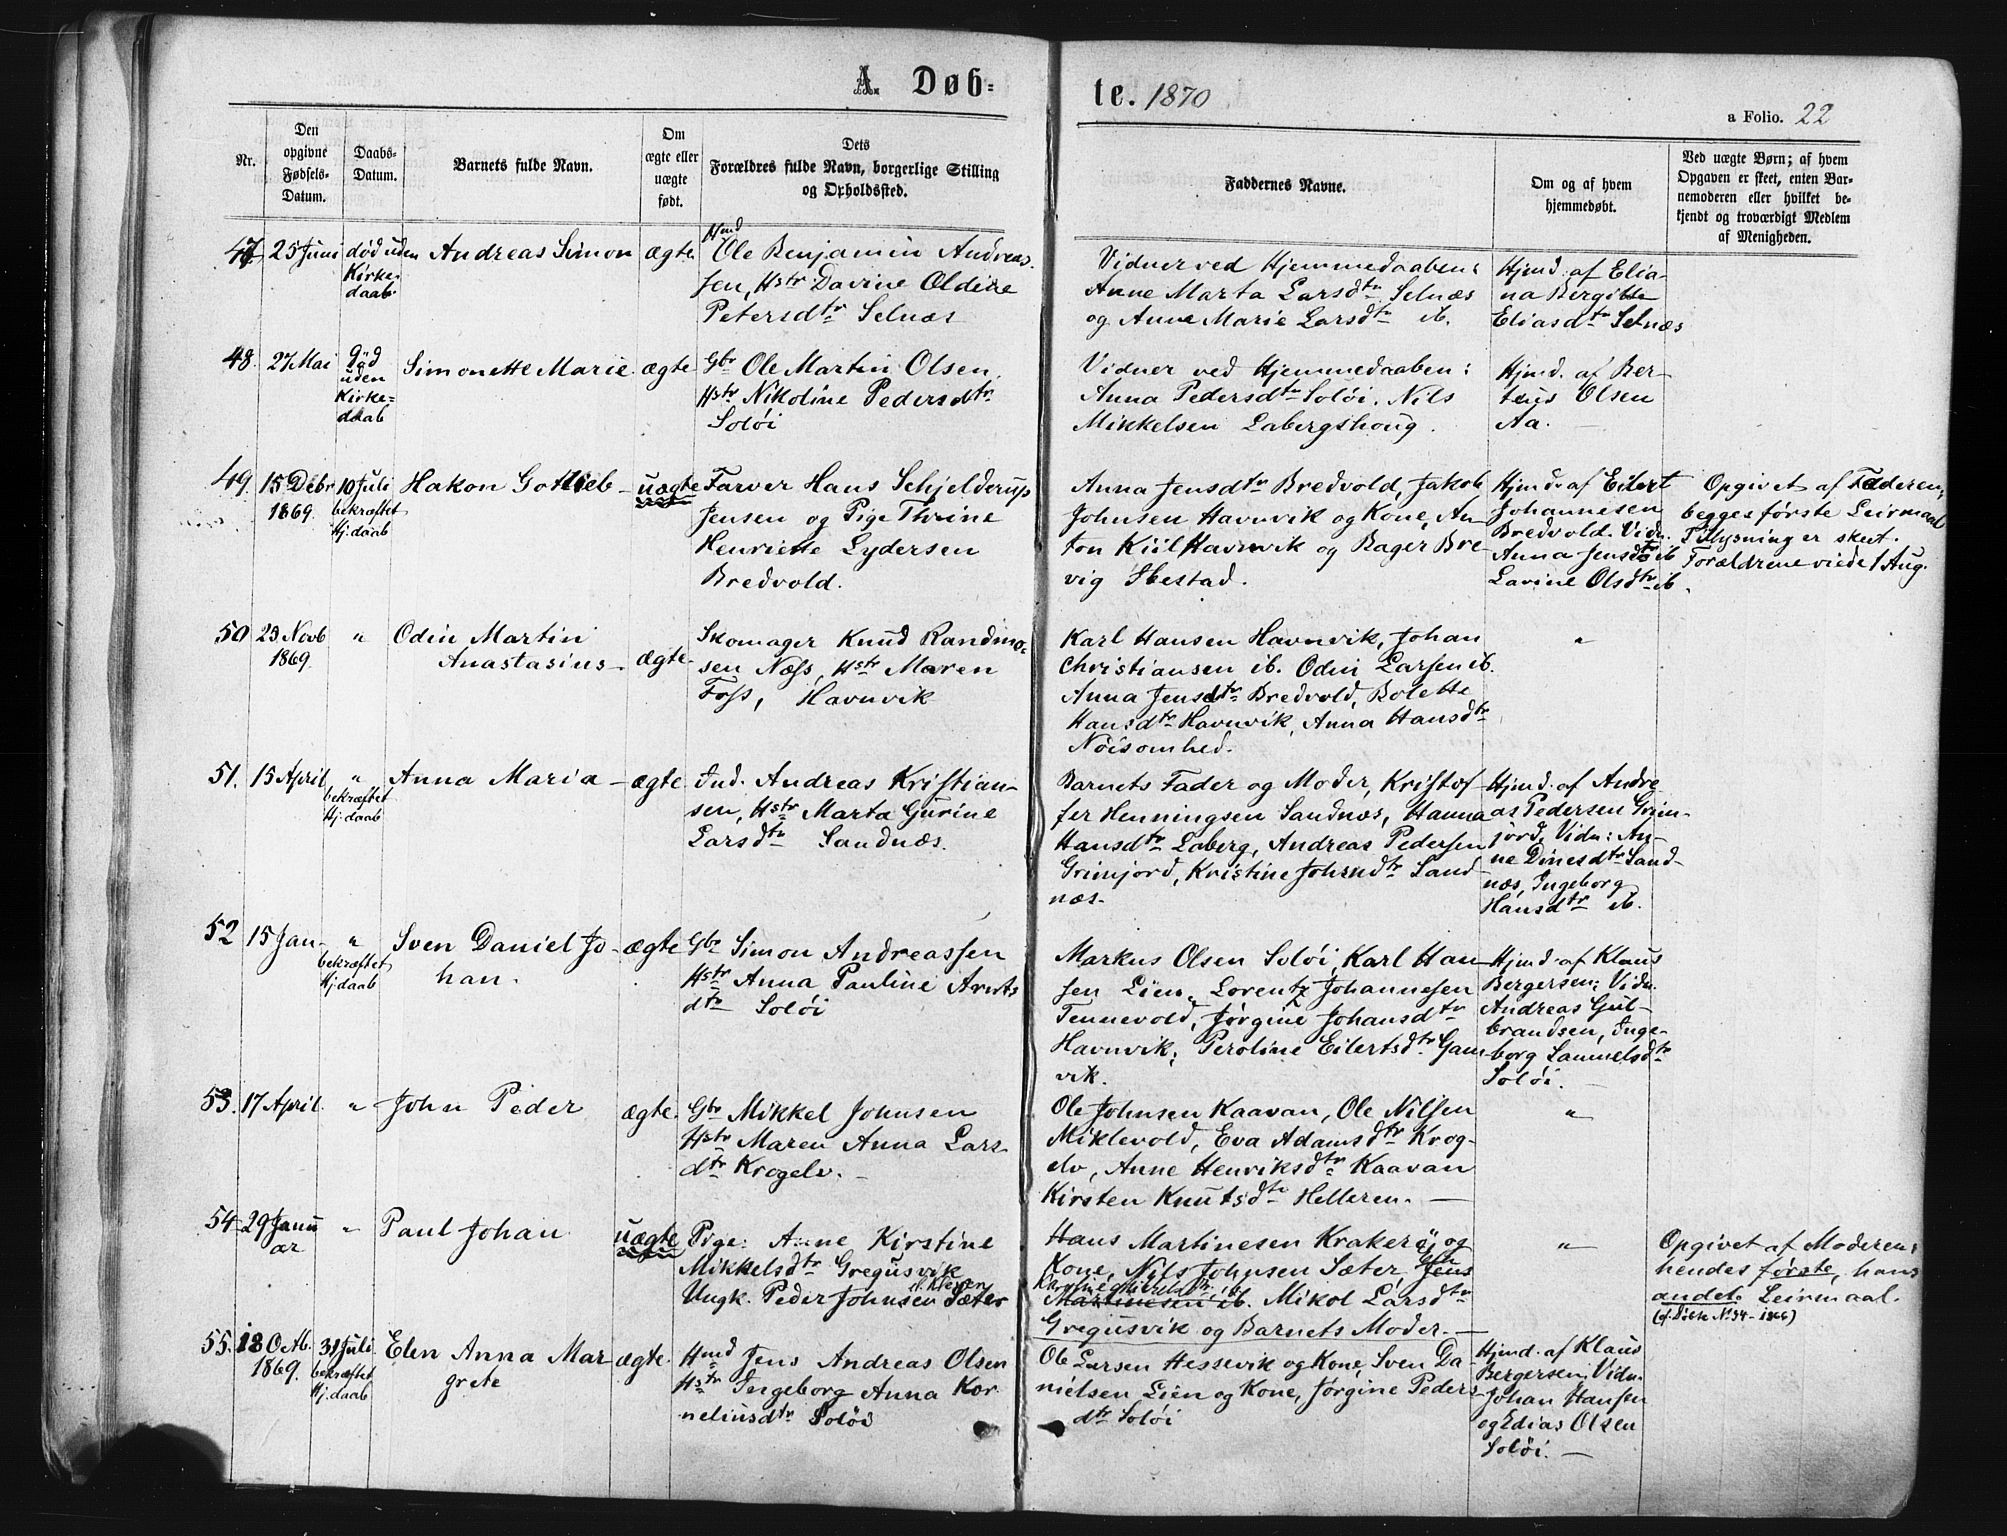 A Døb-
te. 1870
a Folio. 22
Nr.
Den opgivne Fødsels-Datum.
Daabs-Datum.
Barnets fulde Navn.
Om ægte eller uægte født.
Dets
Forældres fulde Navn, borgerlige Stilling
og Opholdssted.
Faddernes Navne.
Om og af hvem
hjemmedøbt.
Ved uægte Børn; af hvem
Opgaven er skeet, enten Bar-
nemoderen eller hvilket be-
kjendt og troværdigt Medlem
af Menigheden.
47. 25 Juni død uden Kirke-daab. Andreas Simon ægte
Hmd
Ole Benjamin Andreas-
sen, Hstr Davine Oldine
Petersdtr Selnæs
Vidner ved Hjemmedaaben:
Anne Marta Larsdtr Selnæs
og Anne Marie Larsdtr ib.
Hjmd. af Elia-
na Bergitte
Eliasdtr Selnæs
48. 27 Mai død uden Kirke-daab Simonette Marie ægte
Gbr Ole Martin Olsen,
Hstr Nikoline Pedersdtr
Soløi
Vidner ved Hjemmedaaben:
Anna Pedersdtr Soløi. Nils
Mikkelsen Labergshoug.
Hjmd. af Ber-
teus Olsen
Aa. —
49. 15 Debr 1869. 10 Juli bekræftet Hj.daab Hakon Gottlieb – uægte
Farver Hans Schjelderup
Jensen og Pige Thrine
Henriette Lydersen
Bredvold.
Anna Jensdtr Bredvold, Jakob
Johnsen Havnvik og Kone, An-
ton Kiil Havnvik og Bager Bre-
vig Ibestad.
Hjmd. af Eilert
Johannesen
Bredvold. Vidn.
Anna Jensdtr ib
Lavine Olsdtr ib.
Opgivet af Faderen;
begges første Leirmaal
Tillysning er skeet.
Forældrene viede 1 Aug.
50 23 Novb 1869. " Odin Martin
Anastasius – ægte
Skomager Knud Randmo-
sen Næss, Hstr Maren
Foss, Havnvik
Karl Hansen Havnvik, Johan
Christiansen ib. Odin Larsen ib.
Anna Jensdtr Bredvold, Bolette
Hansdtr Havnvik, Anna Hansdtr
Nøisomhed.
"
51. 15 April " bekræftet Hj.daab Anna Maria – ægte
Ind. Andreas Kristian-
sen, Hstr Marta Gurine
Larsdtr Sandnæs.
Barnets Fader og Moder, Kristof-
fer Henningsen Sandnæs, Hanna
Hansdtr Laberg, Andreas Pedersen
Grimjord, Kristine Johsndtr Sand-
næs.
Hjmd. af Andre-
as Pedersen Grim-
jord, Vidn: An-
ne Dinesdtr Sand-
næs, Ingeborg
Hansdtr ib.
52 15 Jan- " bekræftet Hj.daab Sven Daniel Jo-
han. – ægte
Gbr Simon Andreassen
Hstr Anna Pauline Arnts-
dtr Soløi
Markus Olsen Soløi, Karl Han-
sen Lien, Lorentz Johannesen
Tennevold, Jørgine Johansdtr
Havnvik, Peroline Eilertsdtr Gam-
vik.
Hjmd. af Klaus
Bergersen; Vidn.
Andreas Gul-
brandsen, Inge-
borg Samuelsdtr
Soløi. —
53. 17 April. " John Peder ægte.
Gbr Mikkel Johnsen
Hstr Maren Anna Lars-
dtr Krogelv. –
Ole Johnsen Kaavan, Ole Nilsen
Miklevold, Eva Adamsdtr Krog-
elv, Anne Henriksdtr Kaavan
Kirsten Knutsdtr Helleren. —
"
54 29 Janu ar " Paul Johan uægte
Pige: Anne Kirstine
Mikkelsdtr Gregusvik
Ungk. Peder Johnsen Sæter
Hans Martinesen Krakerø og
Kone, Nils Johnsen Sæter, Jens
Martinesen ib. Mikol Larsdtr
Gregusvik og Barnets Moder. —
"
Opgivet af Moderen:
hendes første, hans
andet Leirmaal.
(cf. Døbte No 94 – 1866)
55. 18 Octb. 1869. 31 Juli bekræftet Hj.daab Elen Anna Mar-
grete ægte.
Hmd Jens Andreas Olsen
Hstr Ingeborg Anna Kor-
neliusdtr Soløi
Ole Larsen Hessevik og Kone, Sven Da-
nielsen Lien og Kone, Jørgine Peders-
dtr Soløi
Hjmd. af Klaus
Bergersen; Vidn.
Johan Hansen
og Edias Olsen
Soløi. —